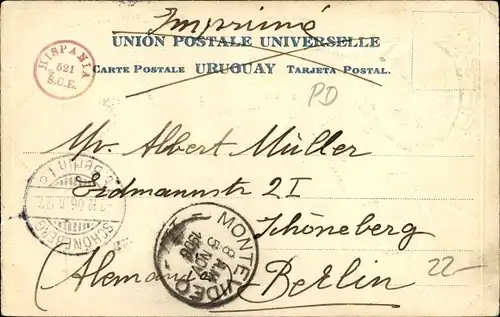 Imprimé
UNION POSTALE UNIVERSELLE
CARTE POSTALE URUGUAY TARJETA POSTAL.
HISPANIA
521
S.C.E.
PD
Mr. Albert Müller
Erdmannstr 2 I
Schöneberg
(Alemania) Berlin
22-
* Berlin 1 c
SCHÖNEBERG
MONTEVIDEO
8 A.M.
5 NOV
1906